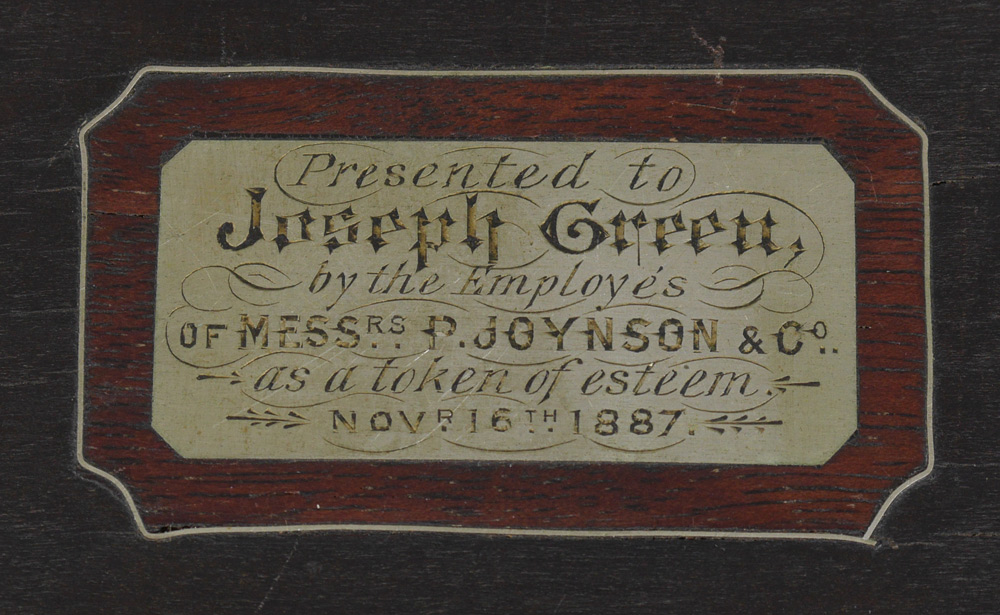 Presented to
Joseph Green,
by the Employés
OF MESSRS. P. JOYNSON & Co..
as a token of esteem.
NOVR 16TH. 1887.